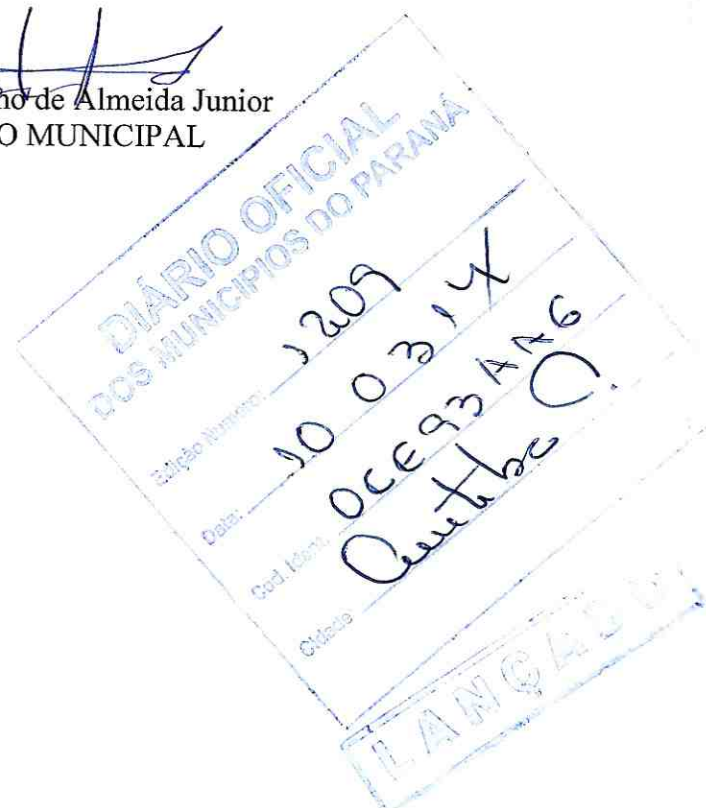 ho de Almeida Junior
O MUNICIPAL
DIÁRIO OFICIAL
DOS MUNICIPIOS DO PARANÁ
Edição Numero: 1209
Data: 10 03 14
Cod. Ident. 0CE93AA6
Cidade Curitiba
LANÇADO